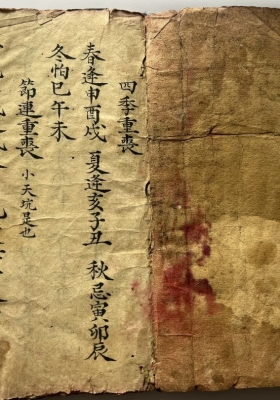 四季重喪
春逢申酉戌 夏逢亥子丑 秋忌寅卯辰
冬怕巳午未
節連重喪 小天坑是也